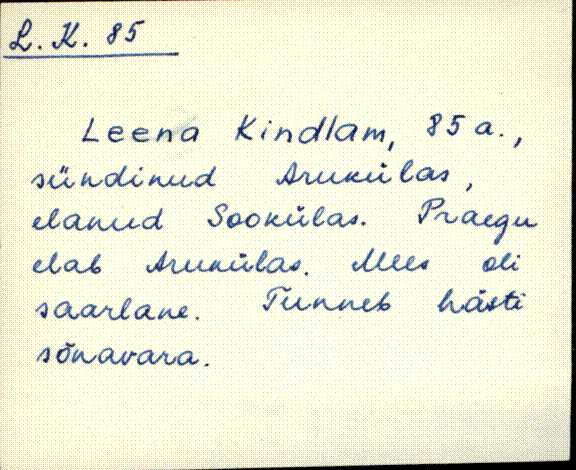 L. K. 85
Leena Kindlam, 85 a.,
sündinud Arukülas,
elanud Sookülas. Praegu
elab Arukülas. Mees oli
saarlane. Tunneb hästi
sõnavara.